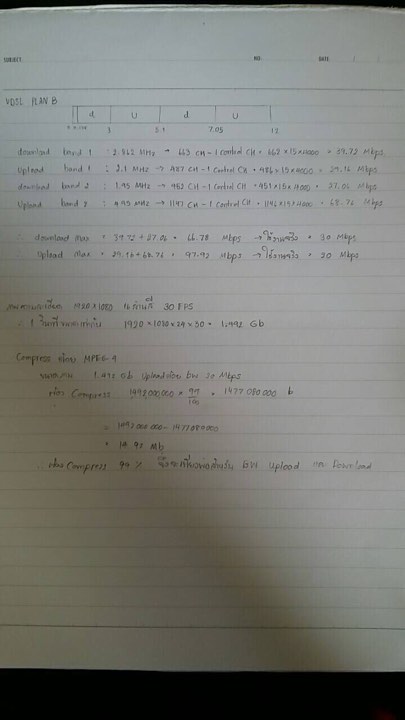 SUBJECT NO. DATE / /
VDSL PLAN B
d U d U
3 5.1 7.05 12
download band 1 : 2.862 MHz → 663 CH - 1 control CH = 662 × 15 × 4000 = 39.72 Mbps
Upload band 1 : 2.1 MHz → 487 CH - 1 Control CH = 486 × 15 × 4000 = 29.16 Mbps
download band 2 : 1.95 MHz → 452 CH - 1 Control CH = 451 × 15 × 4000 = 27.06 Mbps
Upload band 2 : 4.95 MHz → 1147 CH - 1 Control CH = 1146 × 15 × 4000 = 68.76 Mbps
∴ download max = 39.72 + 27.06 = 66.78 Mbps → ใช้งานจริง = 30 Mbps
∴ Upload max = 29.16 + 68.76 = 97.92 Mbps → ใช้งานจริง = 20 Mbps
1920 × 1080 30 FPS
∴ 1 1920 × 1080 × 24 × 30 = 1.492 Gb
Compress ด้วย MPEG-4
1.492 Gb Upload ด้วย bw 20 Mbps
ต้อง Compress 1492000000 × 99/100 = 1477080000 b
= 1492000000 - 1477080000
= 14.92 Mb
∴ ต้อง Compress 99 % BW Upload และ Download